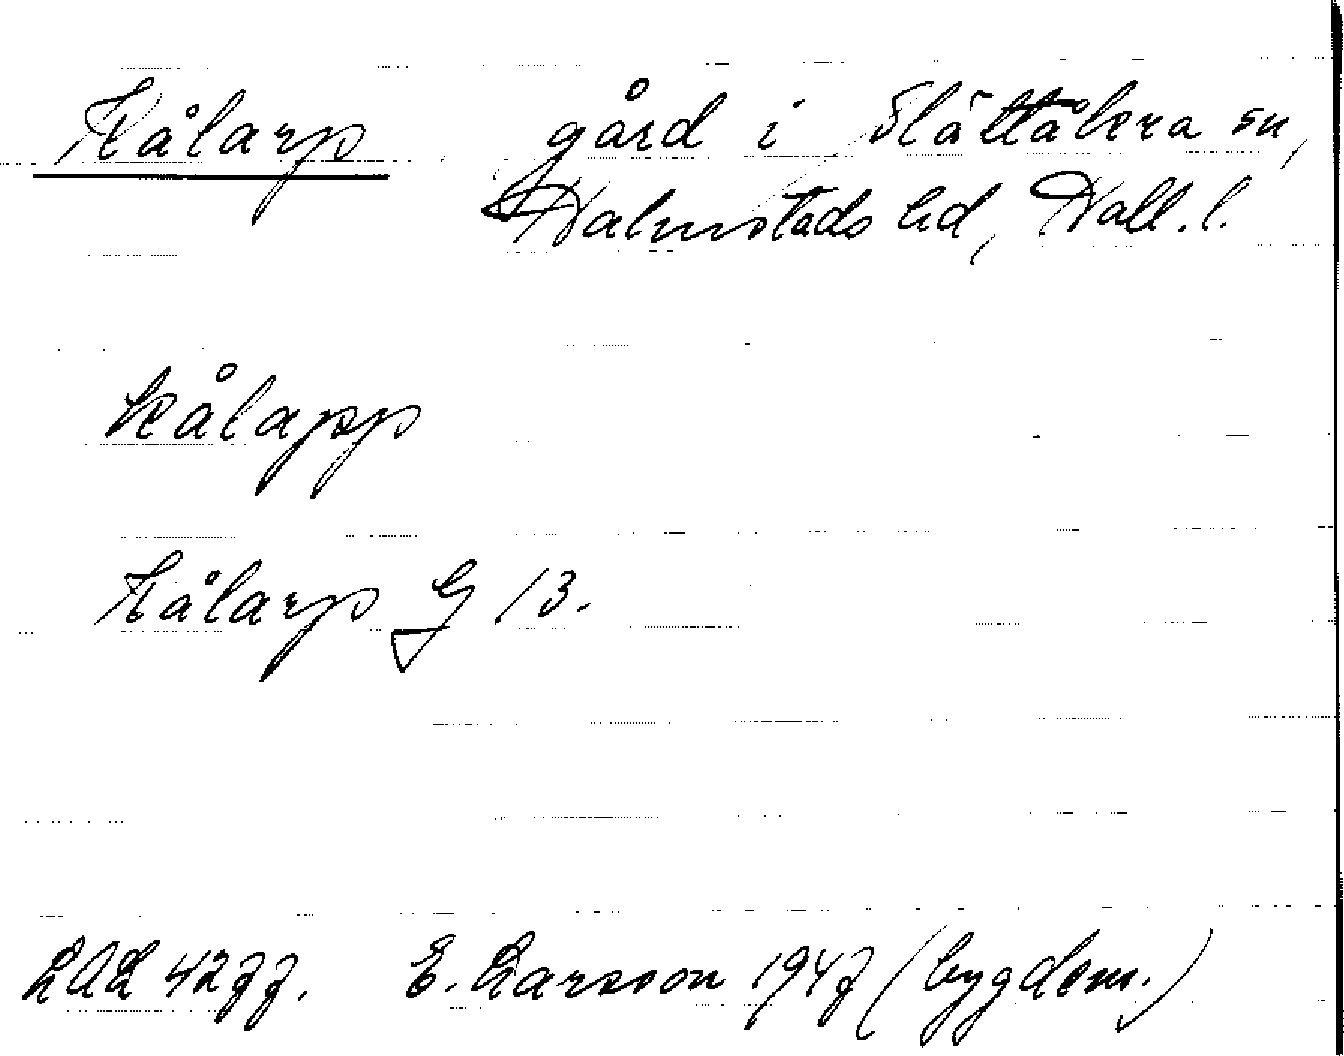 Kålarp gård i Slättåkra sn,
Halmstads hd, Hall. l.
kålapp
Kålarp G 13.
LAL 4277. E. Larsson 1947 (bygdem.)